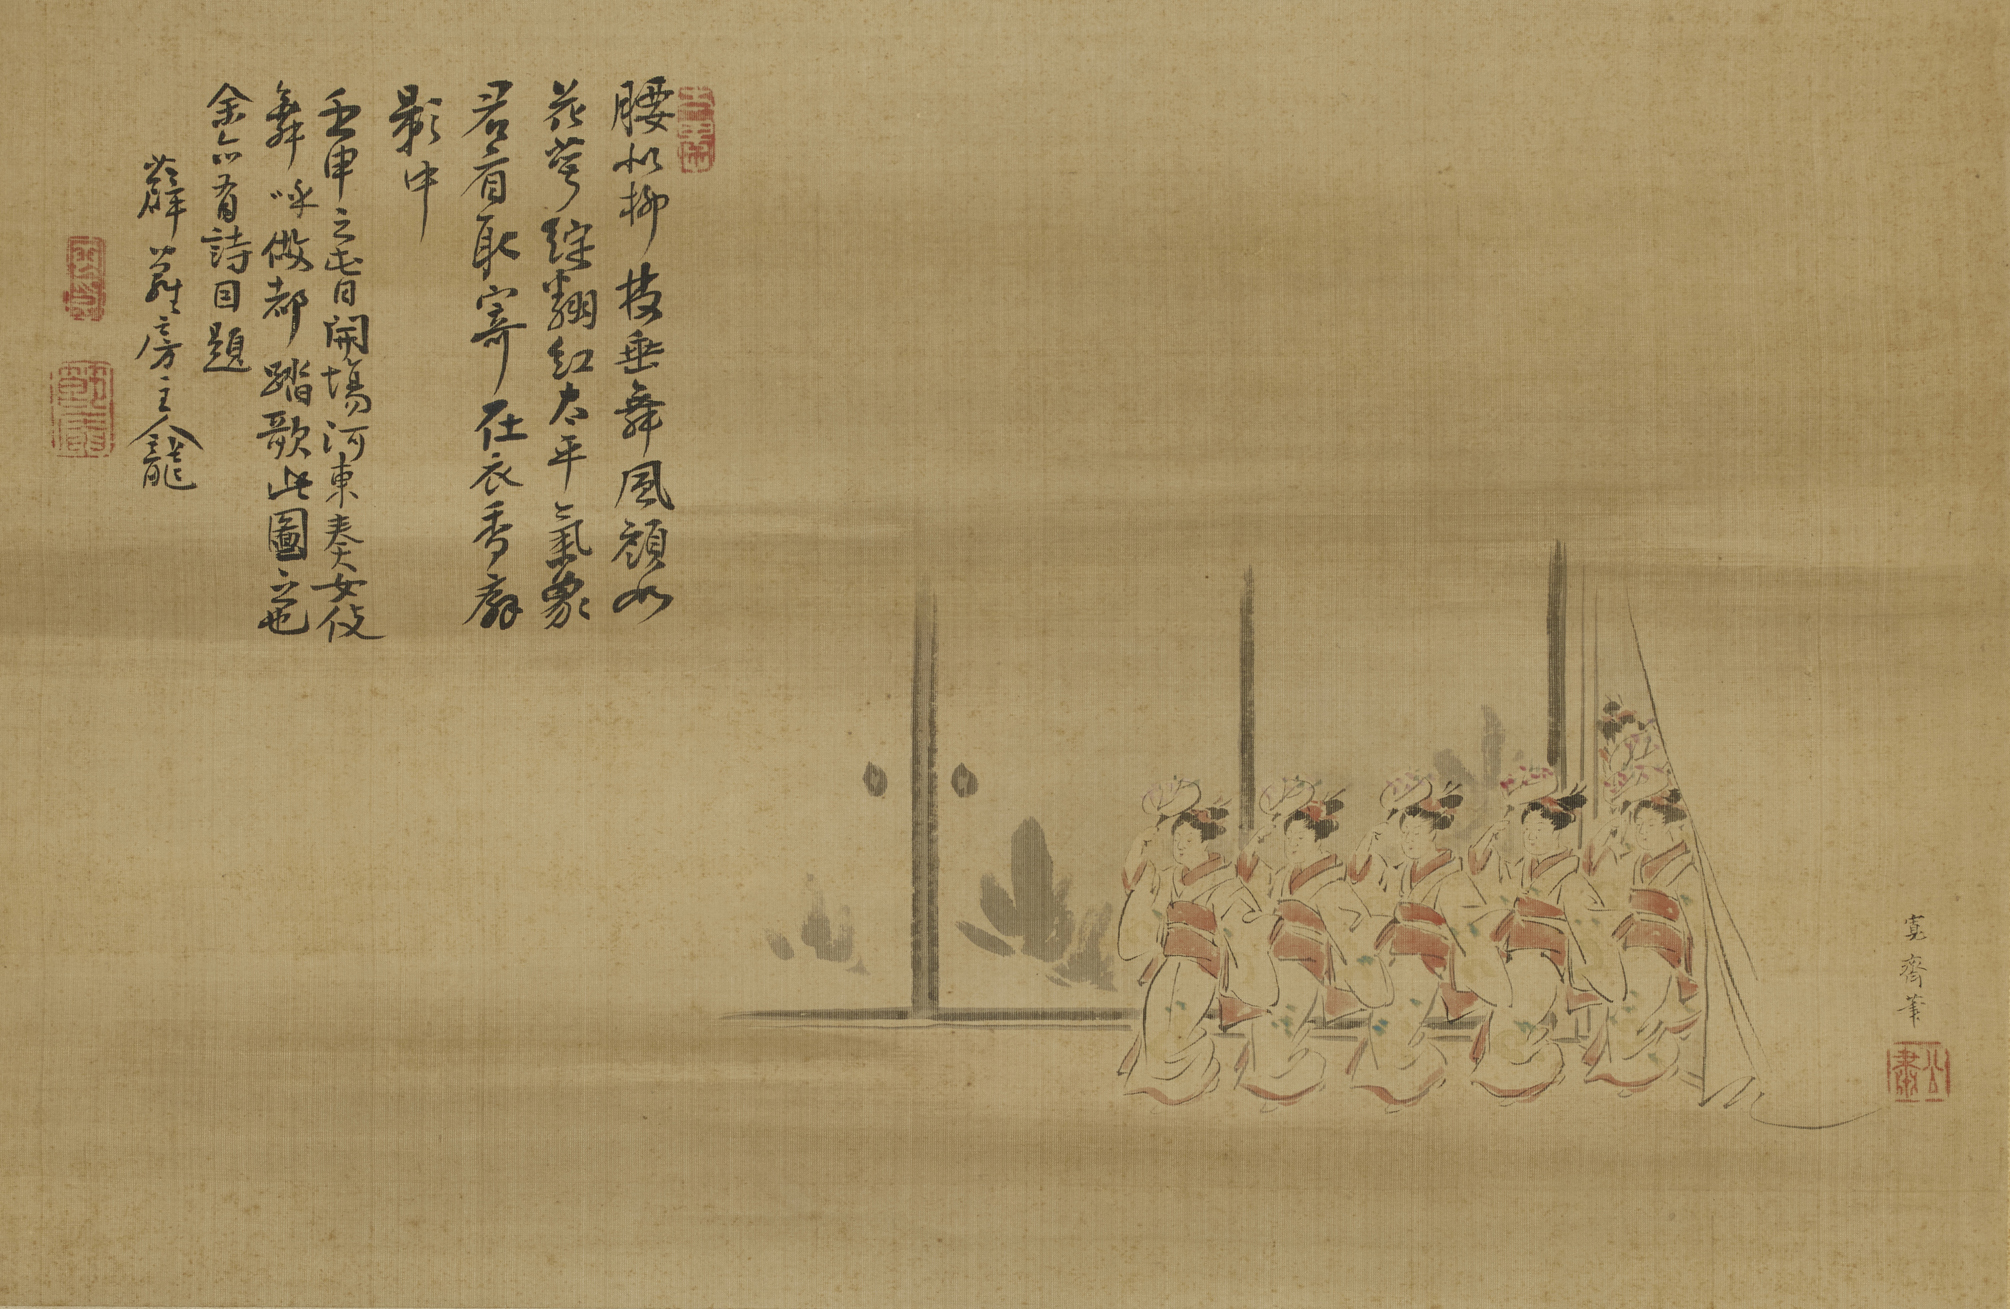 腰似柳枝垂舞風顔如
花萼綻翻紅太平氣象
君看取寄在衣香扇
影中
壬申之春日開場河東奏女伎
舞呼做都踏歌此圖之也
余亦有詩因題
薜蘿房主龕
寛齋筆